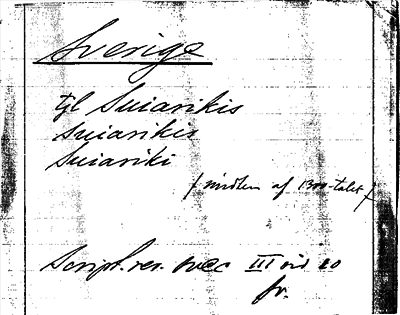 Sverige
tjl Suiarikis
Suiarikis
Suiariki
/ midten af 1300-talet /
Script. rer. svec III sid 10
fr.